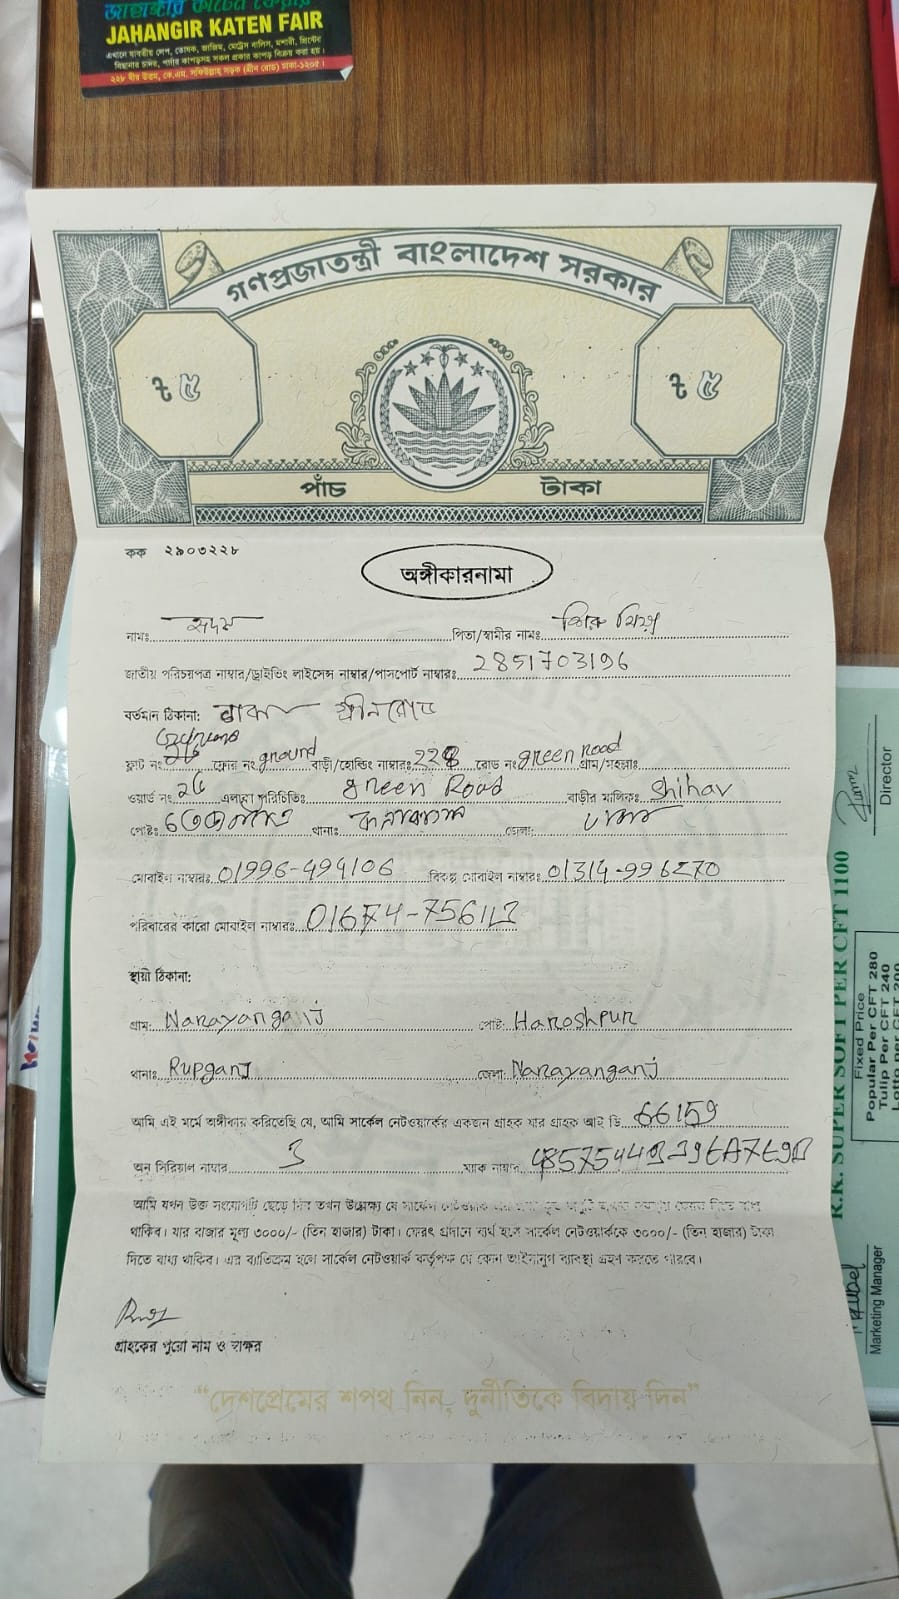 জাহাঙ্গীর কাটেন ফেয়ার
JAHANGIR KATEN FAIR
এখানে যাবতীয় লেপ, তোষক, জাজিম, মেট্রেস বালিস, মশারী, প্রিন্টের
বিছানার চাদর, পর্দার কাপড়সহ সকল প্রকার কাপড় বিক্রয় করা হয়।
২২৮ বীর উত্তম, কে.এম. সফিউল্লাহ সড়ক (গ্রীন রোড) ঢাকা-১২০৫।
গণপ্রজাতন্ত্রী বাংলাদেশ সরকার
৳ ৫ ৳ ৫
পাঁচ টাকা
কক ২৯০৩২২৮
অঙ্গীকারনামা
নামঃ পিতা/স্বামীর নামঃ
জাতীয় পরিচয়পত্র নাম্বার/ড্রাইভিং লাইসেন্স নাম্বার/পাসপোর্ট নাম্বারঃ 2851703196
বর্তমান ঠিকানা: ঢাকা গ্রীনরোড
ফ্লাট নং ফ্লোর নং ground বাড়ী/হোল্ডিং নাম্বারঃ 228 রোড নং green road গ্রাম/মহল্লাঃ
ওয়ার্ড নং এলাকা পরিচিতিঃ green Road বাড়ীর মালিকঃ Shihav
পোষ্টঃ থানাঃ কলাবাগান জেলা: ঢাকা
মোবাইল নাম্বারঃ 01996-494106 বিকল্প মোবাইল নাম্বারঃ 01314-996270
পরিবারের কারো মোবাইল নাম্বারঃ 01674-756117
স্থায়ী ঠিকানা:
গ্রাম: Narayanganj পোষ্ট: Haroshpur
থানাঃ Rupganj জেলা: Narayanganj
আমি এই মর্মে অঙ্গীকার করিতেছি যে, আমি সার্কেল নেটওয়ার্কের একজন গ্রাহক যার গ্রাহক আই ডি 66159
অনু সিরিয়াল নাম্বার 3 ম্যাক নাম্বার
আমি যখন উক্ত সংযোগটি ছেড়ে দিব তখন উল্লেখ্য যে সার্কেল থাকিব।
যার বাজার মূল্য ৩০০০/- (তিন হাজার) টাকা। ফেরৎ প্রদানে ব্যর্থ হলে সার্কেল নেটওয়ার্ককে ৩০০০/- (তিন হাজার) টাকা
দিতে বাধ্য থাকিব। এর ব্যতিক্রম হলে সার্কেল নেটওয়ার্ক কর্তৃপক্ষ যে কোন আইনানুগ ব্যবস্থা গ্রহণ করতে পারবে।
গ্রাহকের পুরো নাম ও স্বাক্ষর
“দেশপ্রেমের শপথ নিন, দুর্নীতিকে বিদায় দিন”
Director
R.K. SUPER SOFT PER CFT 1100
Fixed Price
Popular Per CFT 280
Tulip Per CFT 240
Marketing Manager